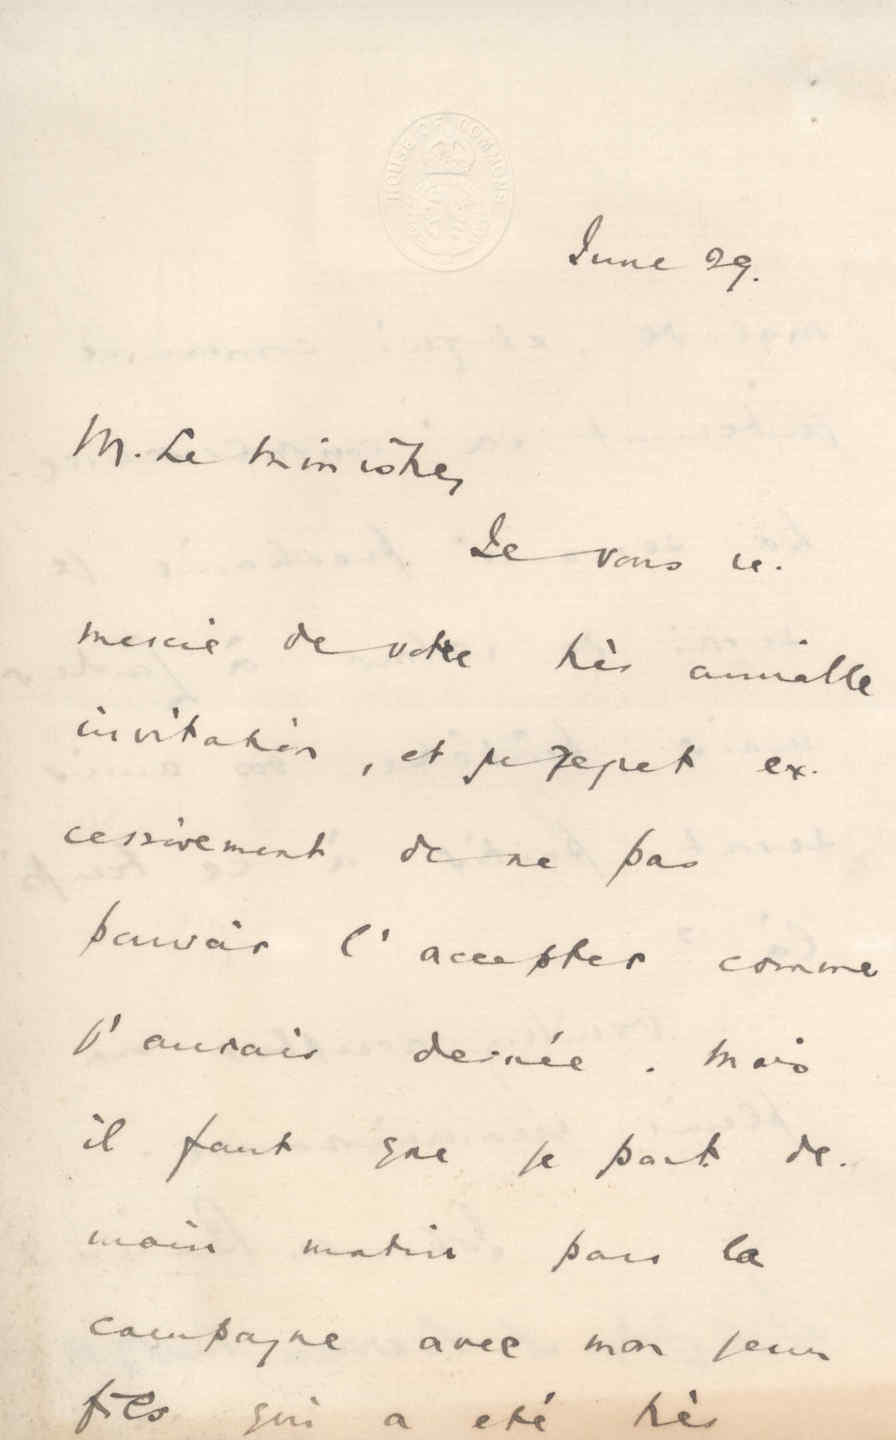 HOUSE OF COMMONS
June 29.
M. Le Ministre,
Je vous re-
mercie de votre très aimable
invitation, et je regret ex-
cessivement de ne pas
pouvoir l'accepter comme
j'aurais
. Mais
il faut que je part de-
main matin pour la
campagne avec mon jeune
fils qui a été très